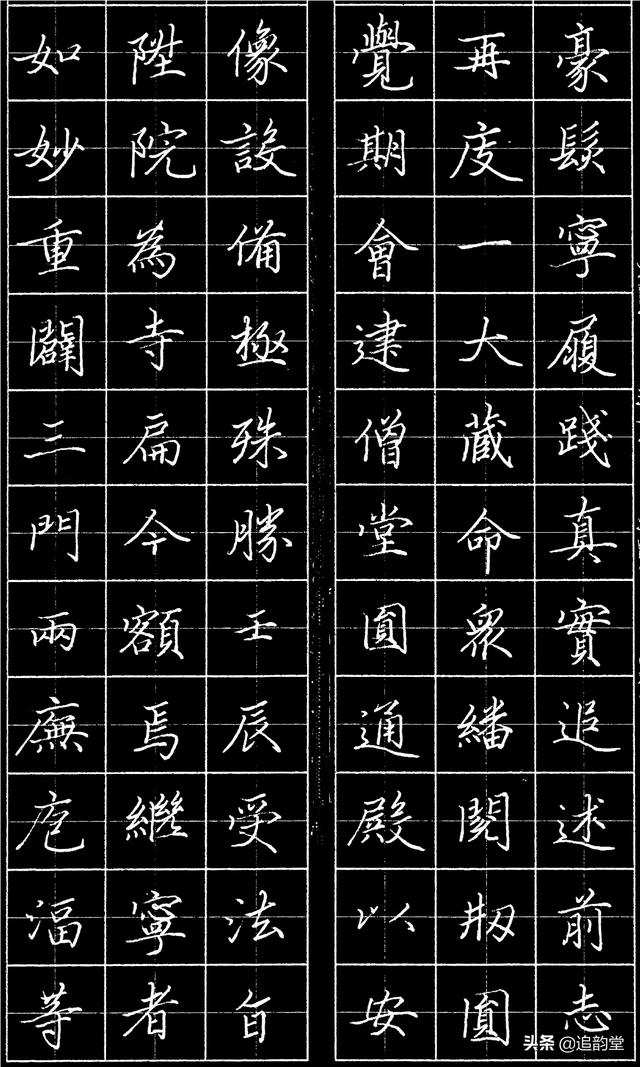 豪髮寧履踐真實追述前志
再度一大藏命衆繙閱刱圓
覺期會建僧堂圓通殿以安
像設備極殊勝壬辰受法旨
陞院為寺扁今額焉繼寧者
如妙重闢三門兩廡庖湢等
头条 @追韵堂